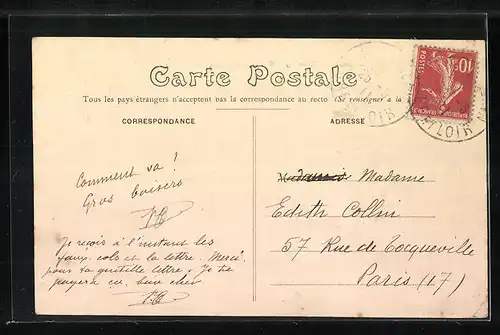 Carte Postale
Tous les pays étrangers n'acceptent pas la correspondance au recto (Se renseigner à la
CORRESPONDANCE
ADRESSE
Comment va ?
Gros baisers
Je reçois à l'instant les
faux-cols et la lettre. Merci
pour ta gentille lettre. Je te
payera
Madame
Edith Collin
57 Rue de Tocqueville
Paris (17)
POSTES
10
REPUBLIQUE FRANÇAISE
LOIR